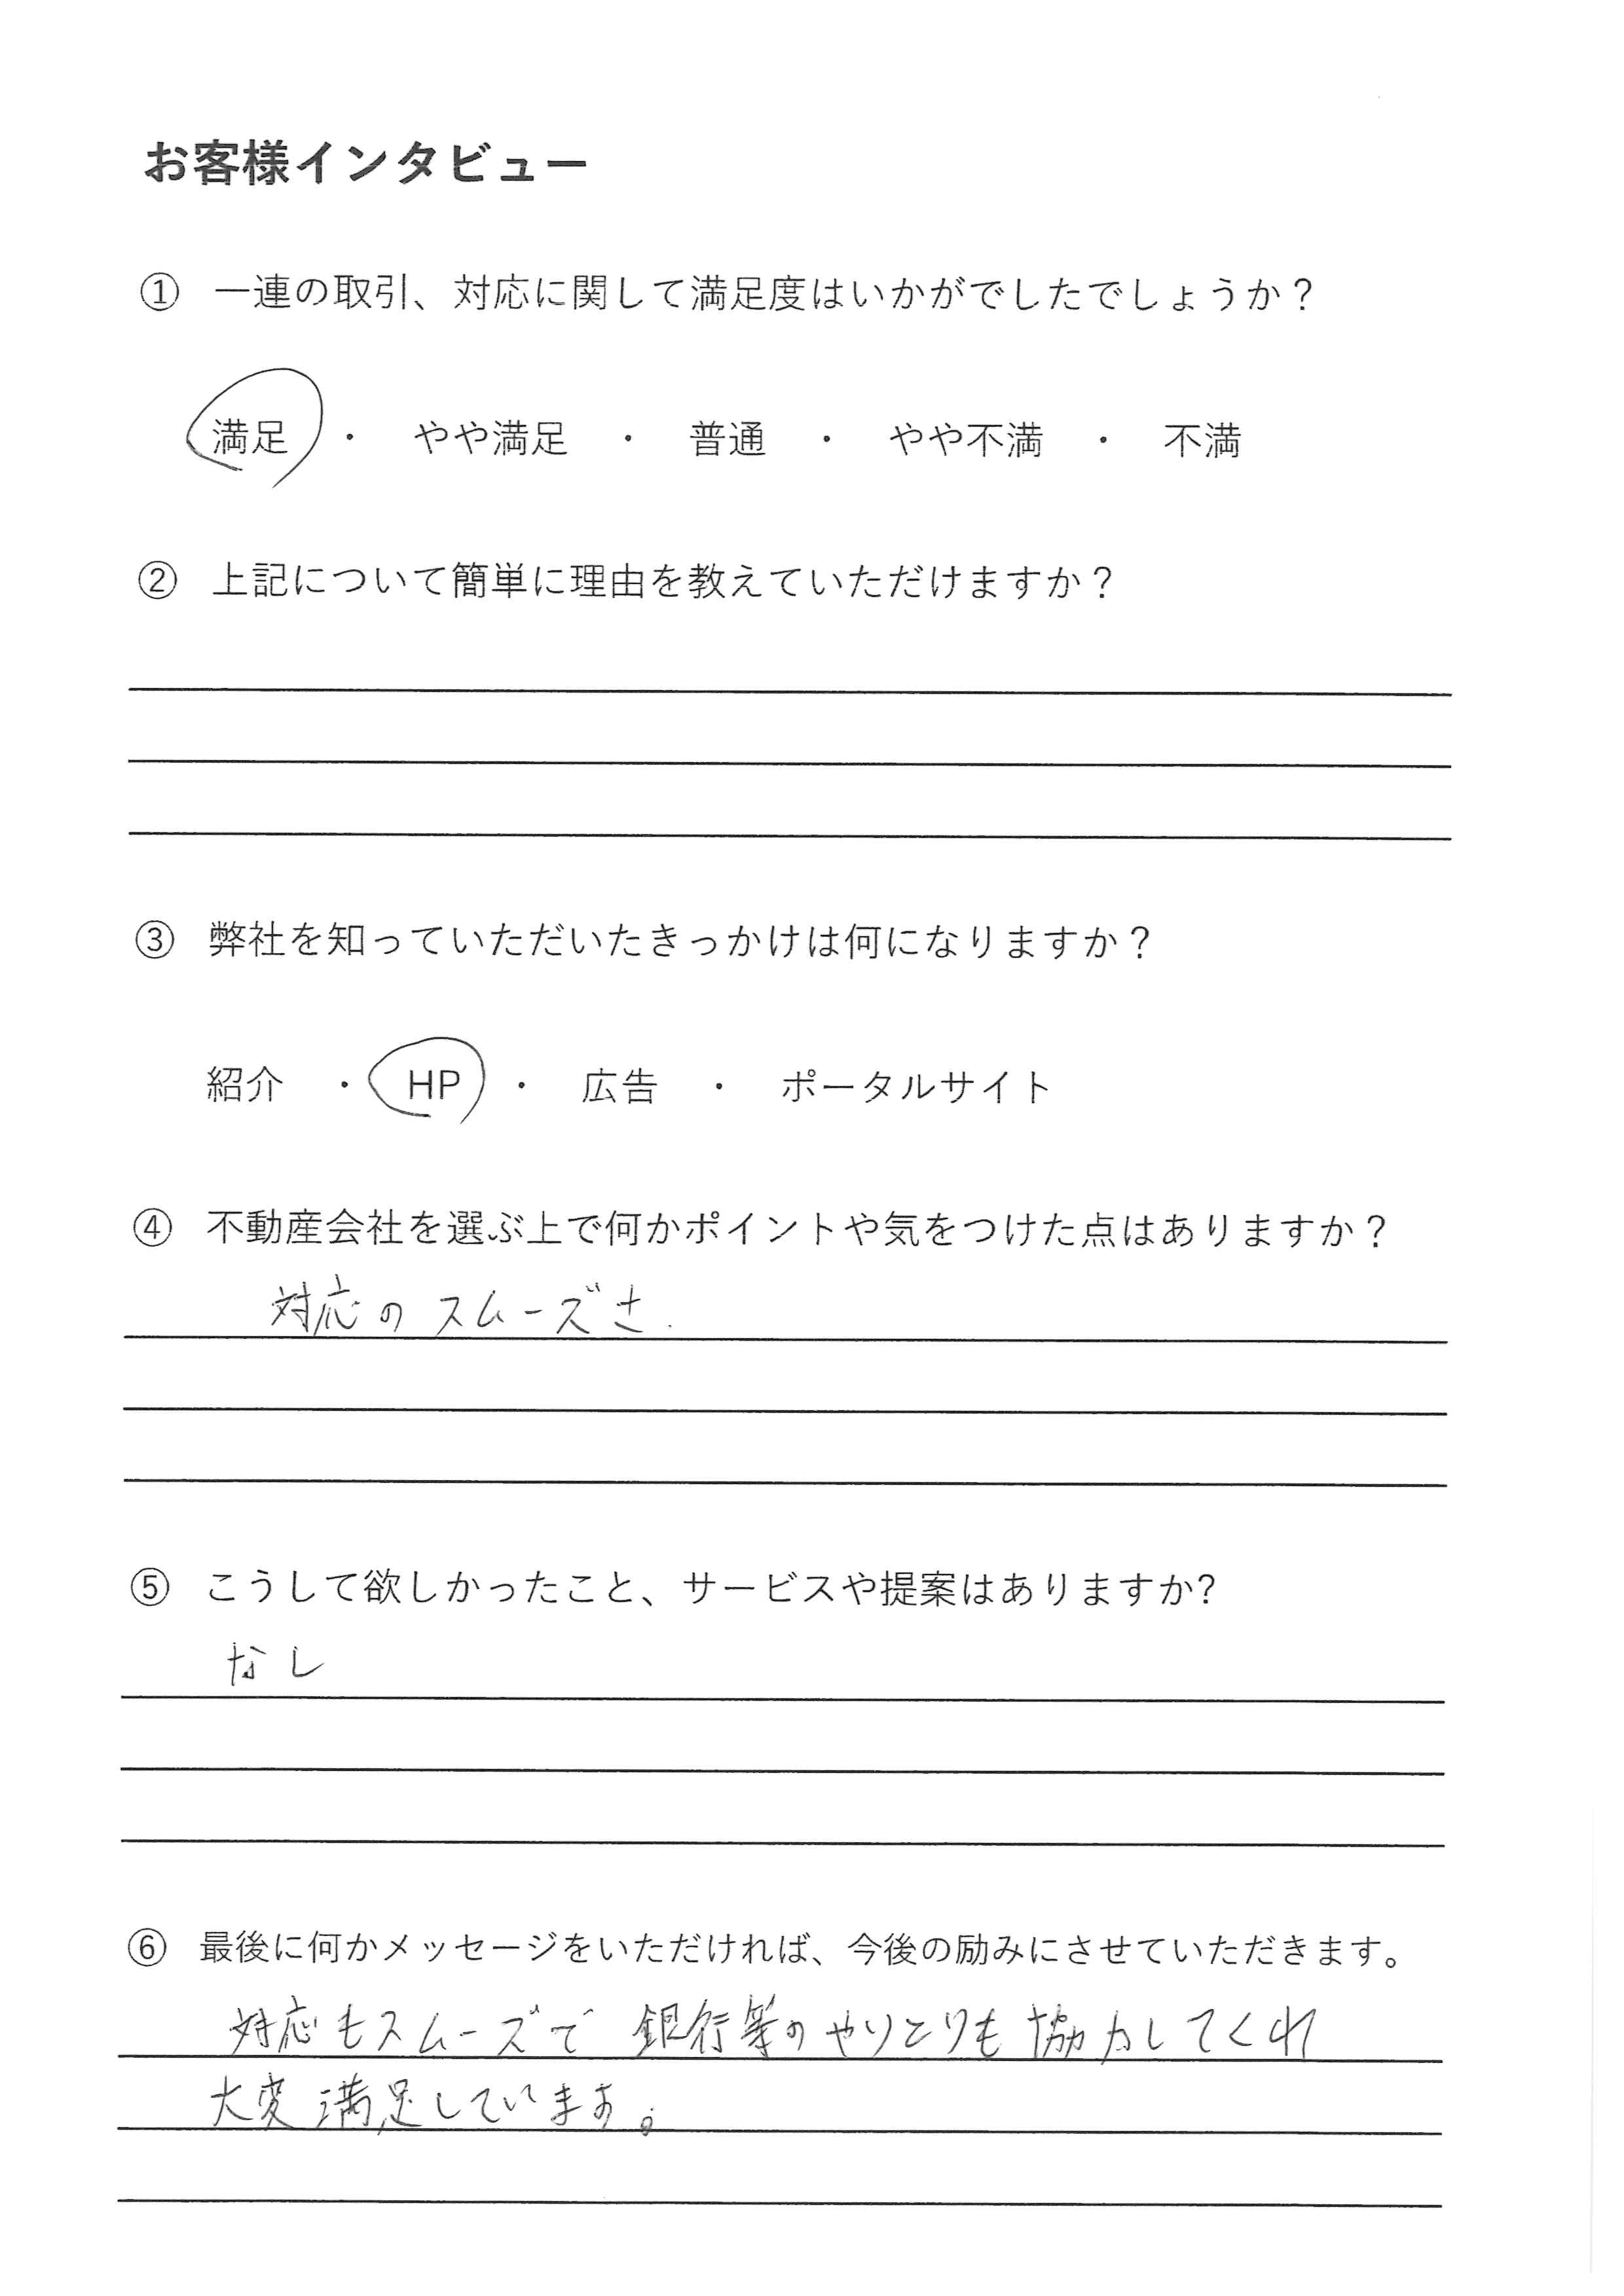 お客様インタビュー
① 一連の取引、対応に関して満足度はいかがでしたでしょうか？
満足 ・ やや満足 ・ 普通 ・ やや不満 ・ 不満
② 上記について簡単に理由を教えていただけますか？
③ 弊社を知っていただいたきっかけは何になりますか？
紹介 ・ HP ・ 広告 ・ ポータルサイト
④ 不動産会社を選ぶ上で何かポイントや気をつけた点はありますか？
対応のスムーズさ.
⑤ こうして欲しかったこと、サービスや提案はありますか?
なし
⑥ 最後に何かメッセージをいただければ、今後の励みにさせていただきます。
対応もスムーズで 銀行等のやりとりも協力してくれ
大変満足しています。